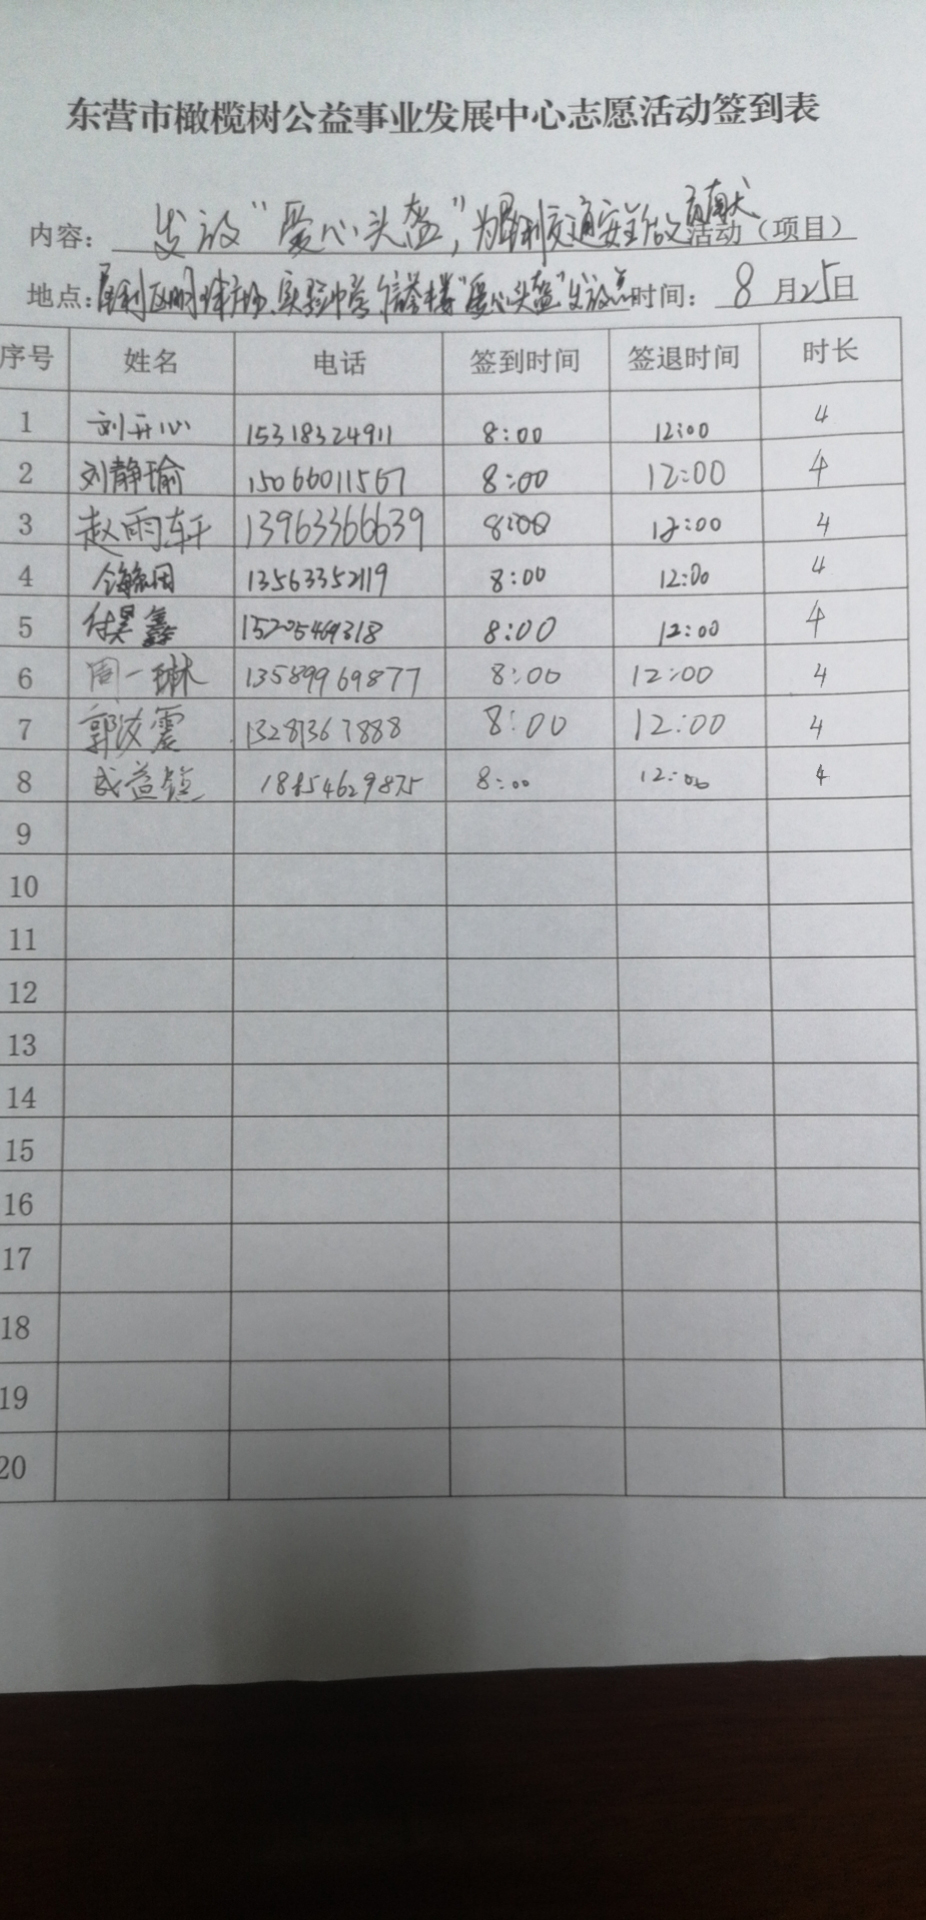 东营市橄榄树公益事业发展中心志愿活动签到表
内容：发放“爱心头盔”，为垦利交通安全做贡献活动（项目）
地点：垦利区 市场、实验中学、信誉楼“爱心头盔”发放点 时间：8月25日
序号 姓名 电话 签到时间 签退时间 时长
1 刘开心 15318324911 8:00 12:00 4
2 刘静瑜 15066011567 8:00 12:00 4
3 赵雨轩 13963366639 8:00 12:00 4
4 13563352119 8:00 12:00 4
5 付昊鑫 15205469318 8:00 12:00 4
6 周一琳 13589969877 8:00 12:00 4
7 郭汶震 8:00 12:00 4
8 成益 18154629875 8:00 12:00 4
9
10
11
12
13
14
15
16
17
18
19
20